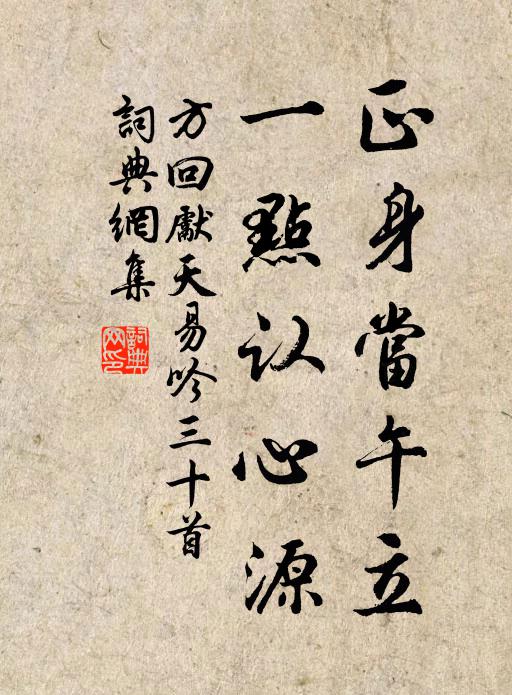 正身當午立
一點认心源
方回獻天易吟三十首
詞典網集
詞典网印